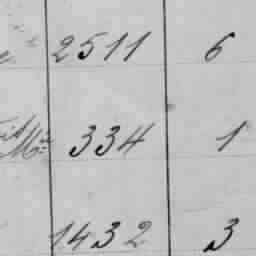 2511 6
334 1
1432 3